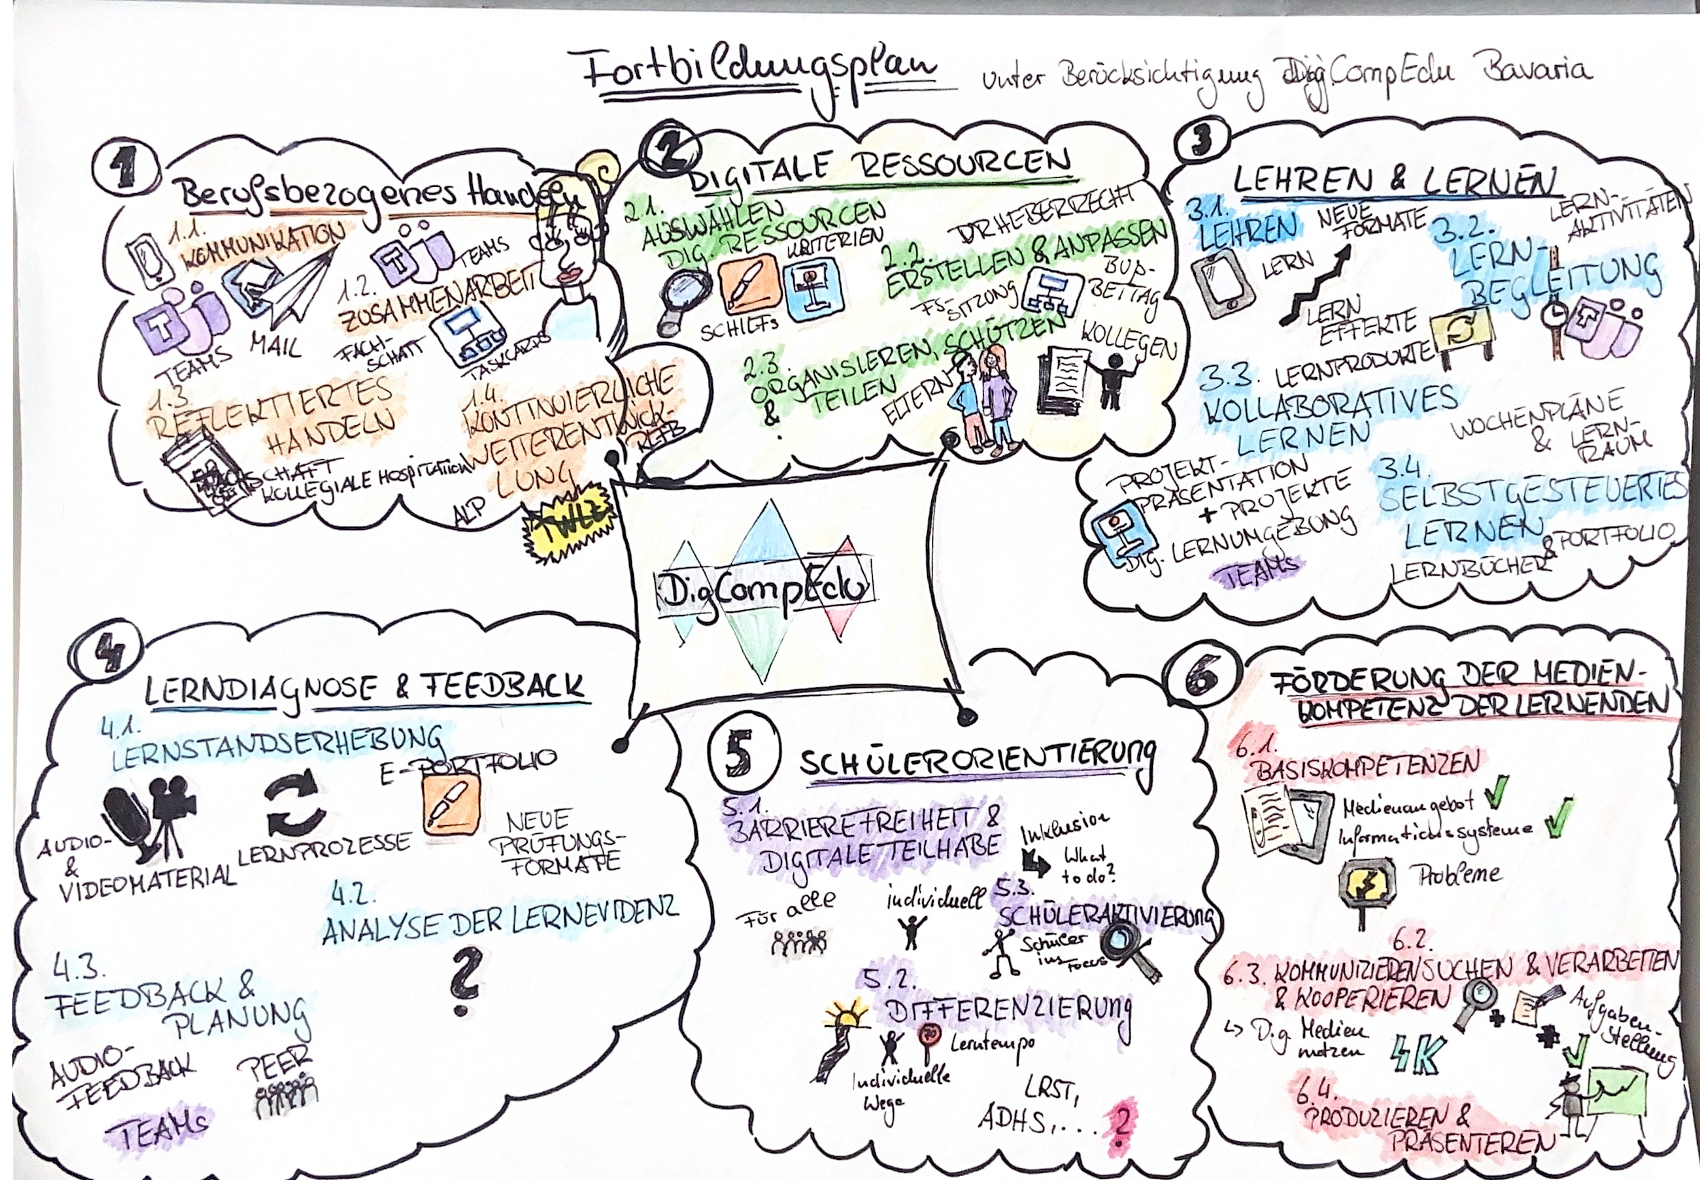 Fortbildungsplan unter Berücksichtigung DigCompEdu Bavaria
1
Berufsbezogenes Handeln
1.1.
KOMMUNIKATION
TEAMS
MAIL
TEAMS
1.2.
ZUSAMMENARBEIT
FACH-
SCHAFT
TASKCARDS
1.3.
REFLEKTIERTES
HANDELN
KOLLEGIALE HOSPITATION
1.4.
KONTINUIERLICHE
WEITERENTWICK-
LUNG
REFB
ALP
2
DIGITALE RESSOURCEN
2.1.
AUSWÄHLEN
DIG. RESSOURCEN
KRITERIEN
SCHILFs
URHEBERRECHT
2.2.
ERSTELLEN & ANPASSEN
FS-
SITZUNG
BUß-
BETTAG
2.3
ORGANISIEREN, SCHÜTZEN
& TEILEN
ELTERN
KOLLEGEN
3
LEHREN & LERNEN
3.1.
LEHREN
NEUE
FORMATE
LERN
LERN
EFFEKTE
LERN-
AKTIVITÄTEN
3.2.
LERN-
BEGLEITUNG
LERNPRODUKTE
3.3.
KOLLABORATIVES
LERNEN
PROJEKT-
PRÄSENTATION
+ PROJEKTE
DIG. LERNUMGEBUNG
TEAMs
WOCHENPLÄNE
& LERN-
RAUM
3.4.
SELBSTGESTEUERTES
LERNEN
LERNBÜCHER & PORTFOLIO
DigCompEdu
4
LERNDIAGNOSE & FEEDBACK
4.1.
LERNSTANDSERHEBUNG
E-PORTFOLIO
AUDIO-
&
VIDEOMATERIAL
LERNPROZESSE
NEUE
PRÜFUNGS-
FORMATE
4.2.
ANALYSE DER LERNEVIDENZ
?
4.3.
FEEDBACK &
PLANUNG
AUDIO-
FEEDBACK
PEER
TEAMs
5
SCHÜLERORIENTIERUNG
5.1.
BARRIEREFREIHEIT &
DIGITALE TEILHABE
Inklusion
What
to do?
Für alle
individuell
5.3.
SCHÜLERAKTIVIERUNG
Schüler
ins Focus
5.2.
DIFFERENZIERUNG
Lerntempo
Individuelle
Wege
LRST,
ADHS,... ?
6
FÖRDERUNG DER MEDIEN-
KOMPETENZ DER LERNENDEN
6.1.
BASISKOMPETENZEN
Medienangebot
Informationssysteme
Probleme
6.2.
SUCHEN & VERARBEITEN
Aufgaben-
stellung
6.3. KOMMUNIZIEREN
& KOOPERIEREN
Dig. Medien
nutzen
6.4.
PRODUZIEREN &
PRÄSENTIEREN